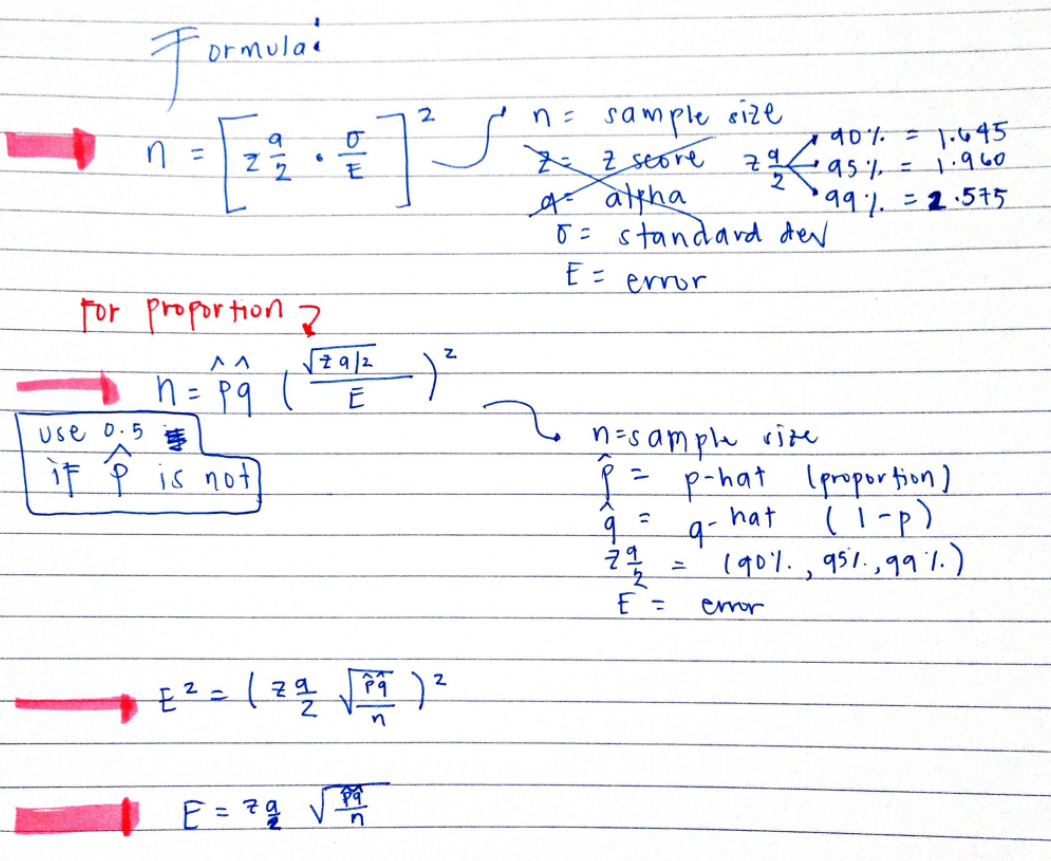 Formulai
n = [z a/2 · σ/E]²
n = sample size
z = z score
a = alpha
σ = standard dev
E = error
z a/2
90% = 1.645
95% = 1.960
99% = 2.575
For proportion
n = p̂q̂ (√z a/2 / E)²
use 0.5
if p̂ is not
n = sample size
p̂ = p-hat (proportion)
q̂ = q-hat (1-p)
z a/2 = (90%, 95%, 99%)
E = error
E² = (z a/2 √p̂q̂/n)²
E = z a/2 √p̂q̂/n